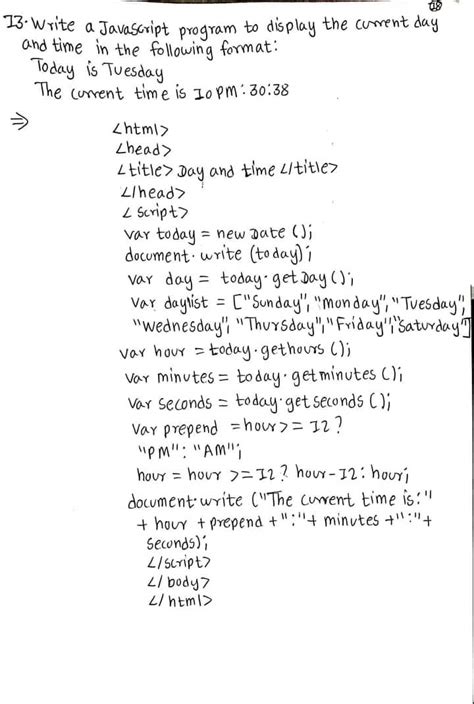 13. Write a JavaScript program to display the current day
and time in the following format:
Today is Tuesday
The current time is 10 PM : 30 : 38
⇒
<html>
<head>
<title> Day and time </title>
</head>
< script>
var today = new Date ();
document. write (today);
var day = today. getDay ();
Var daylist = ["Sunday", "monday", "Tuesday",
"wednesday", "Thursday", "Friday", "saturday"]
var hour = today. gethours ();
var minutes = today. getminutes ();
var seconds = today. getseconds ();
Var prepend = hour >= 12 ?
"PM" : "AM";
hour = hour >= 12 ? hour - 12 : hour;
document. write ("The current time is:"
+ hour + prepend + ":" + minutes + ":" +
seconds);
</script>
</ body>
</ html>